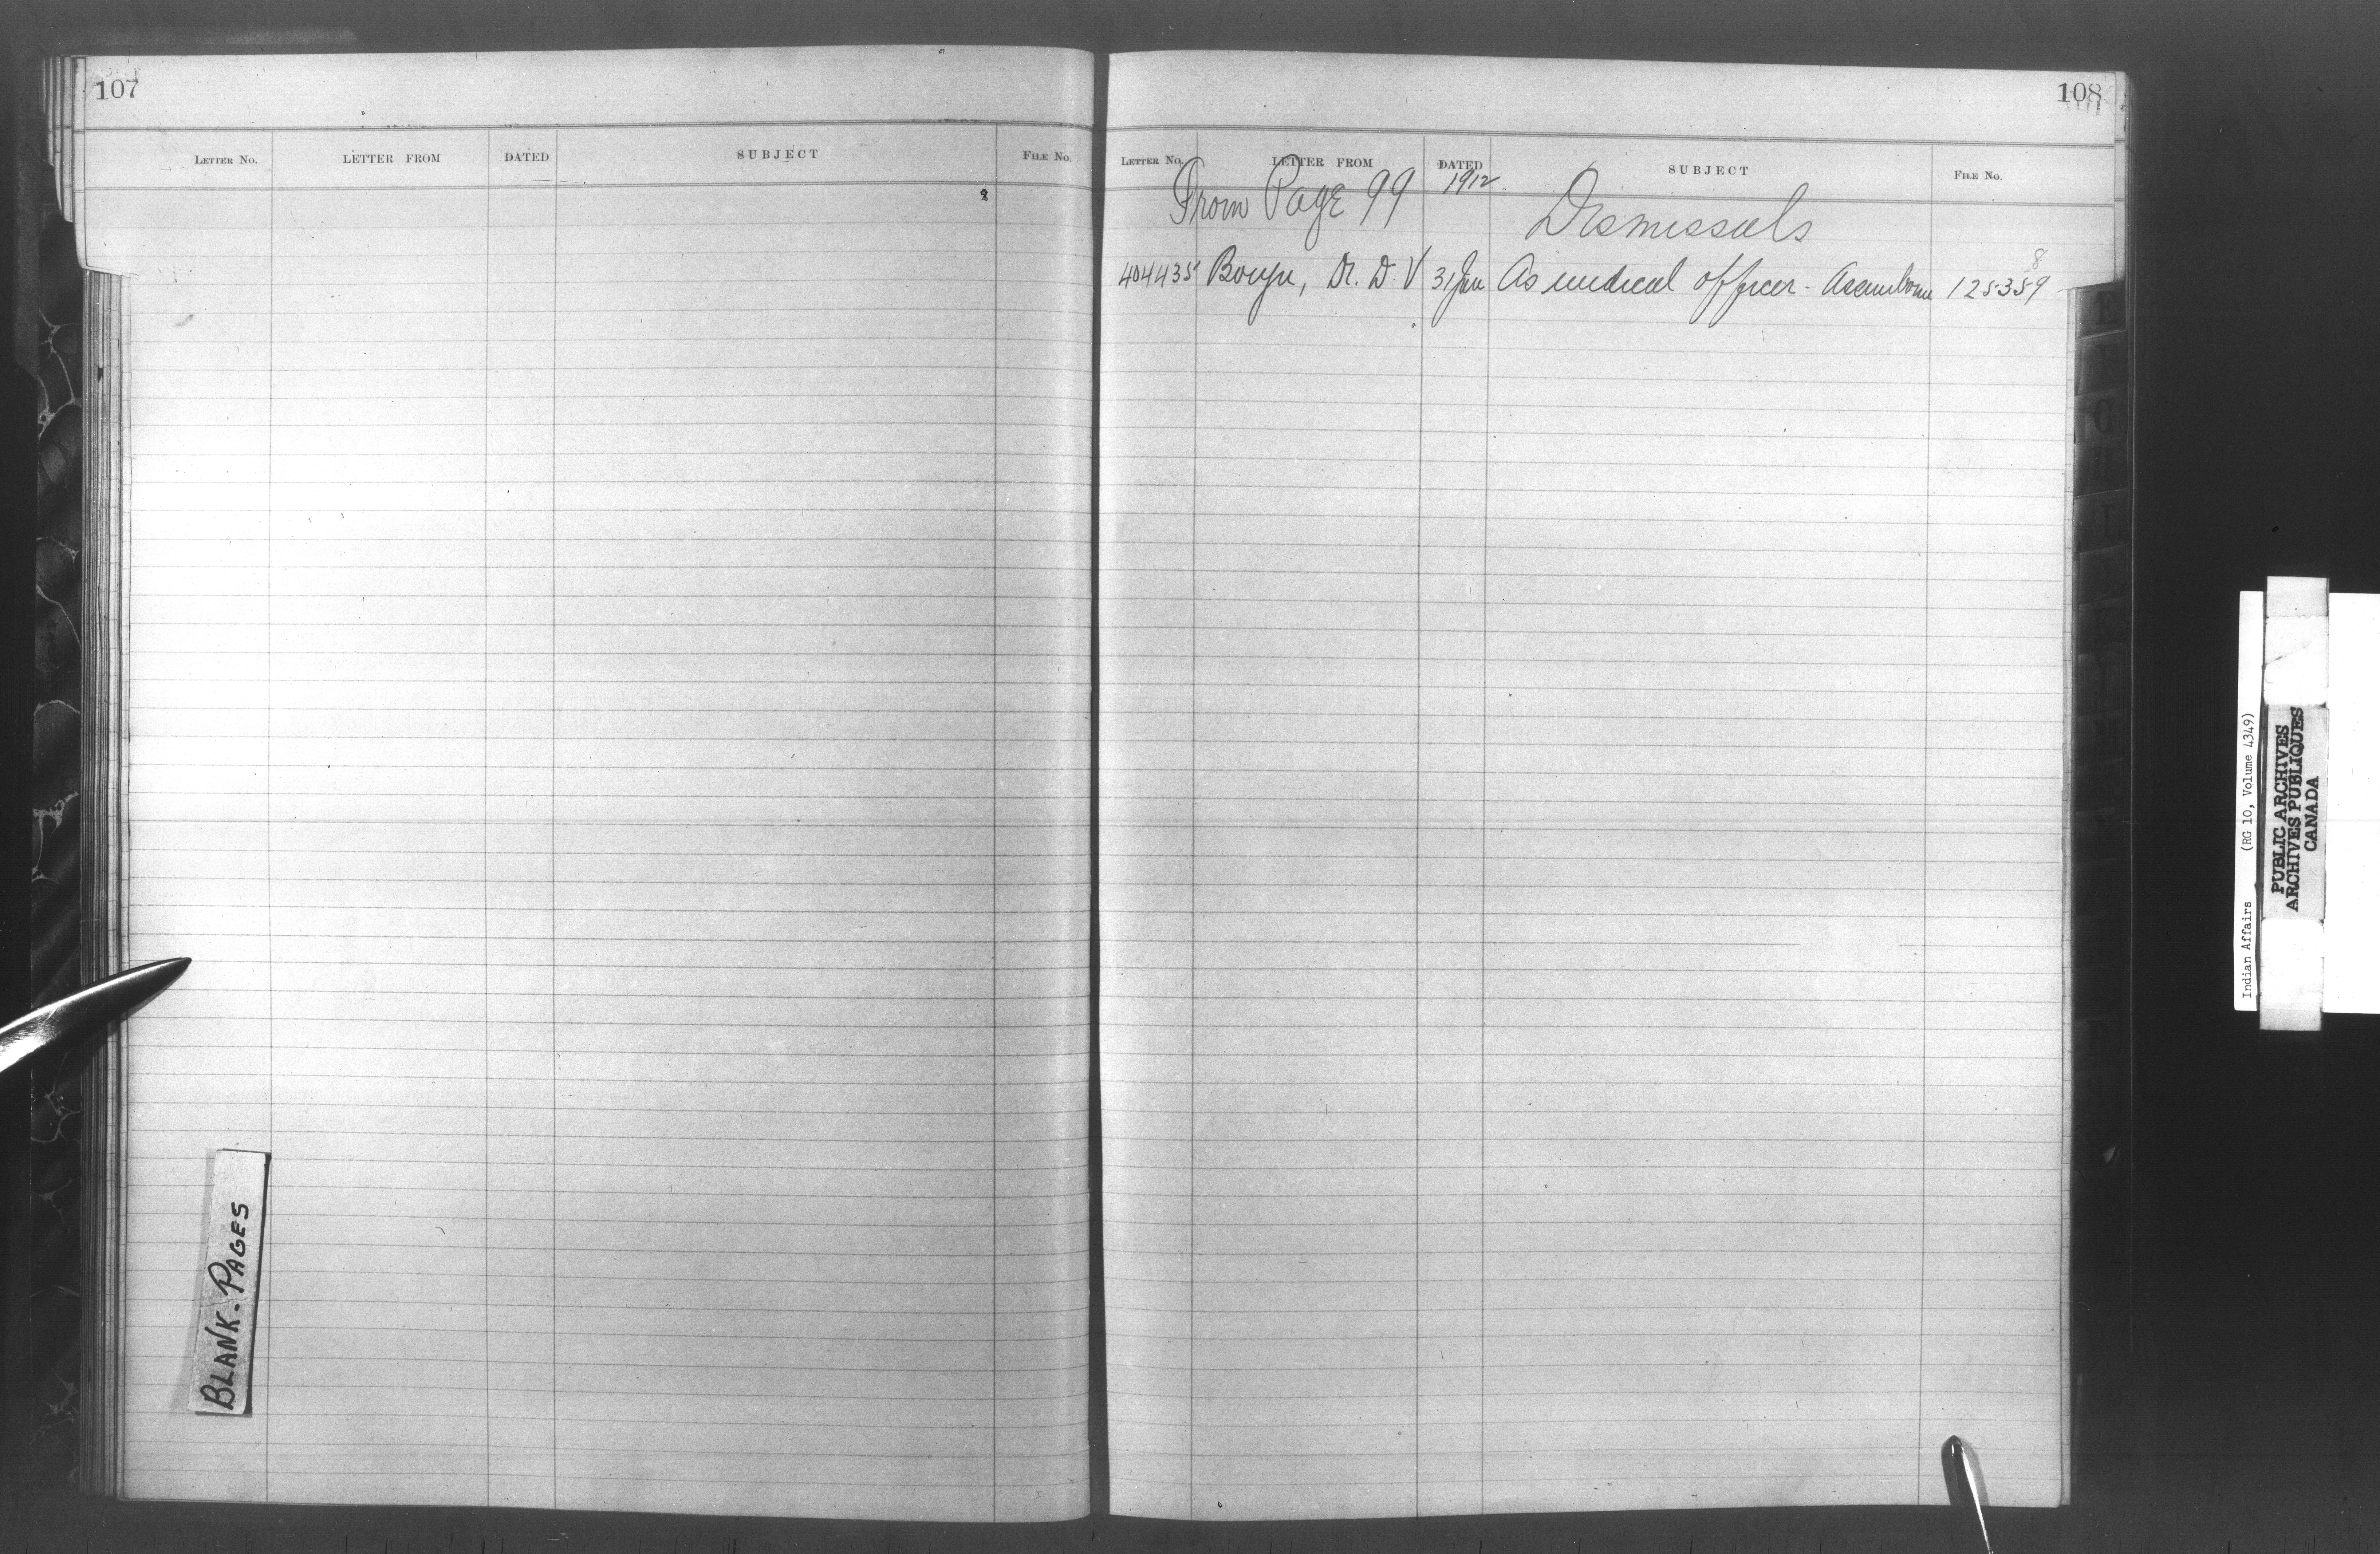 107
LETTER NO. LETTER FROM DATED SUBJECT FILE NO.
BLANK-PAGES
108
LETTER NO. LETTER FROM DATED SUBJECT FILE NO.
From Page 99 1912 Dismissals
8
404435 Dr. D. V 31 Jan As medical officer - 125359
Indian Affairs (RG 10, Volume 4349)
PUBLIC ARCHIVES
ARCHIVES PUBLIQUES
CANADA